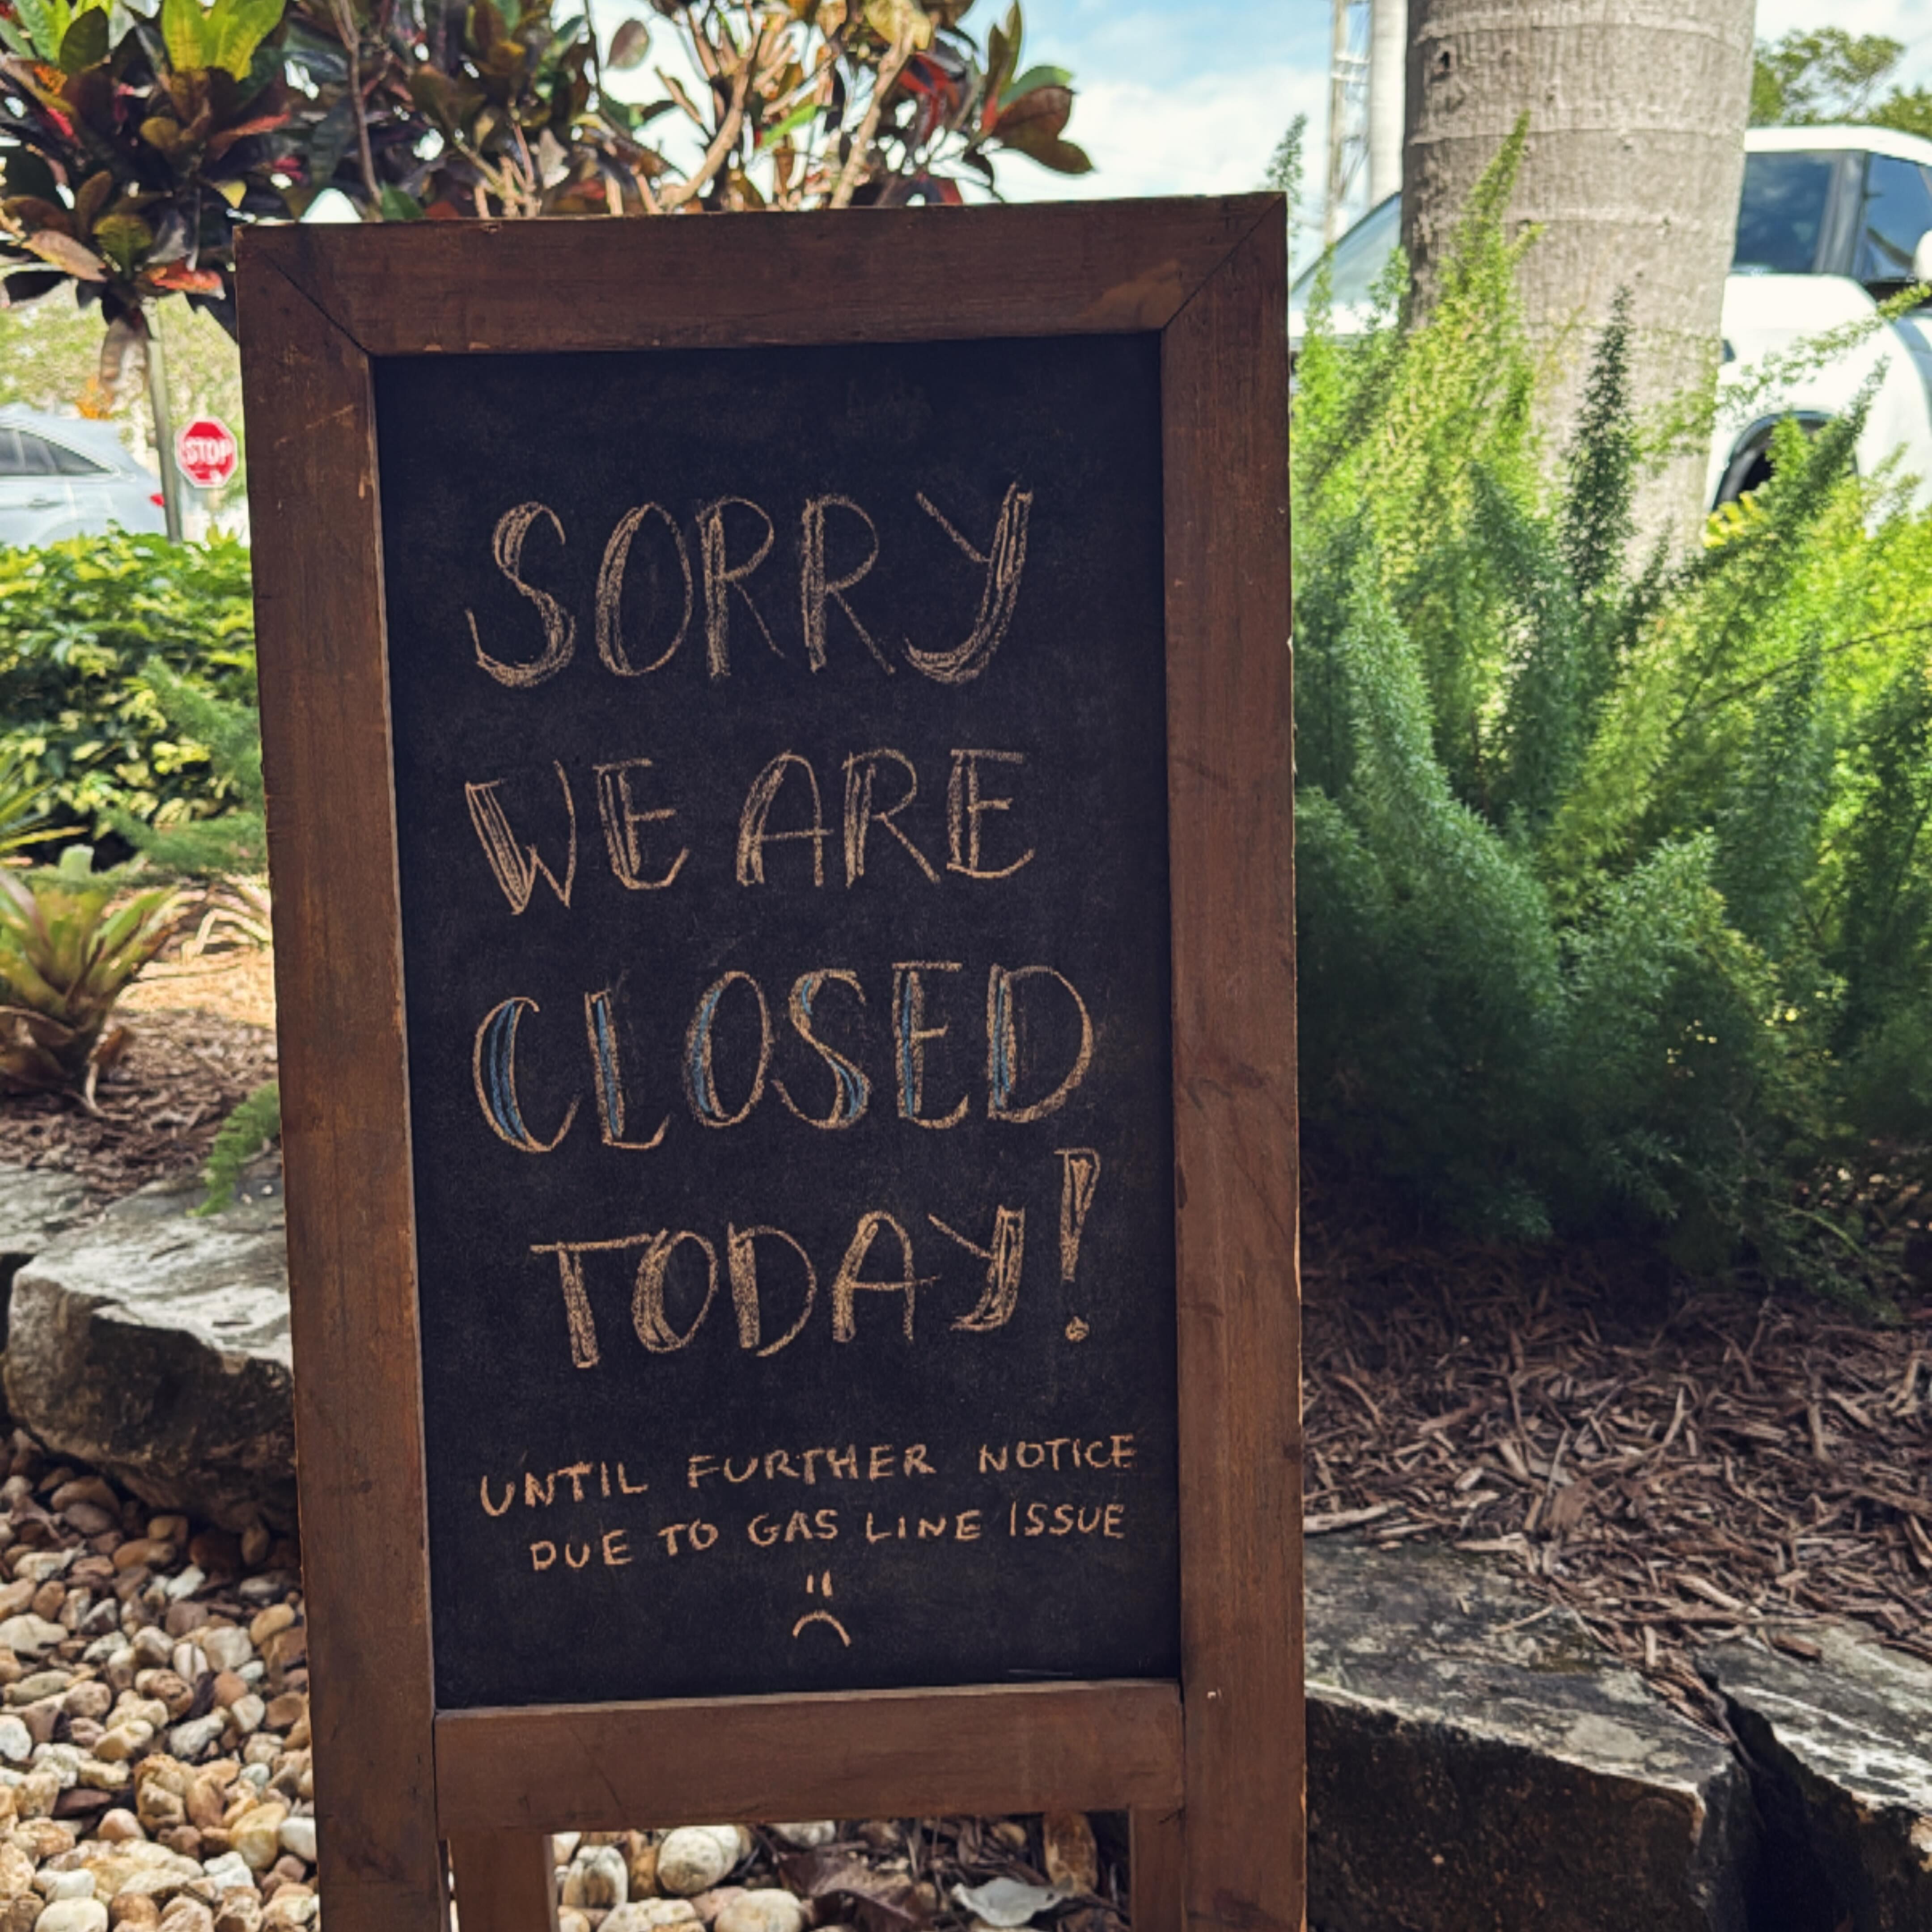 STOP
SORRY
WE ARE
CLOSED
TODAY!
UNTIL FURTHER NOTICE
DUE TO GAS LINE ISSUE